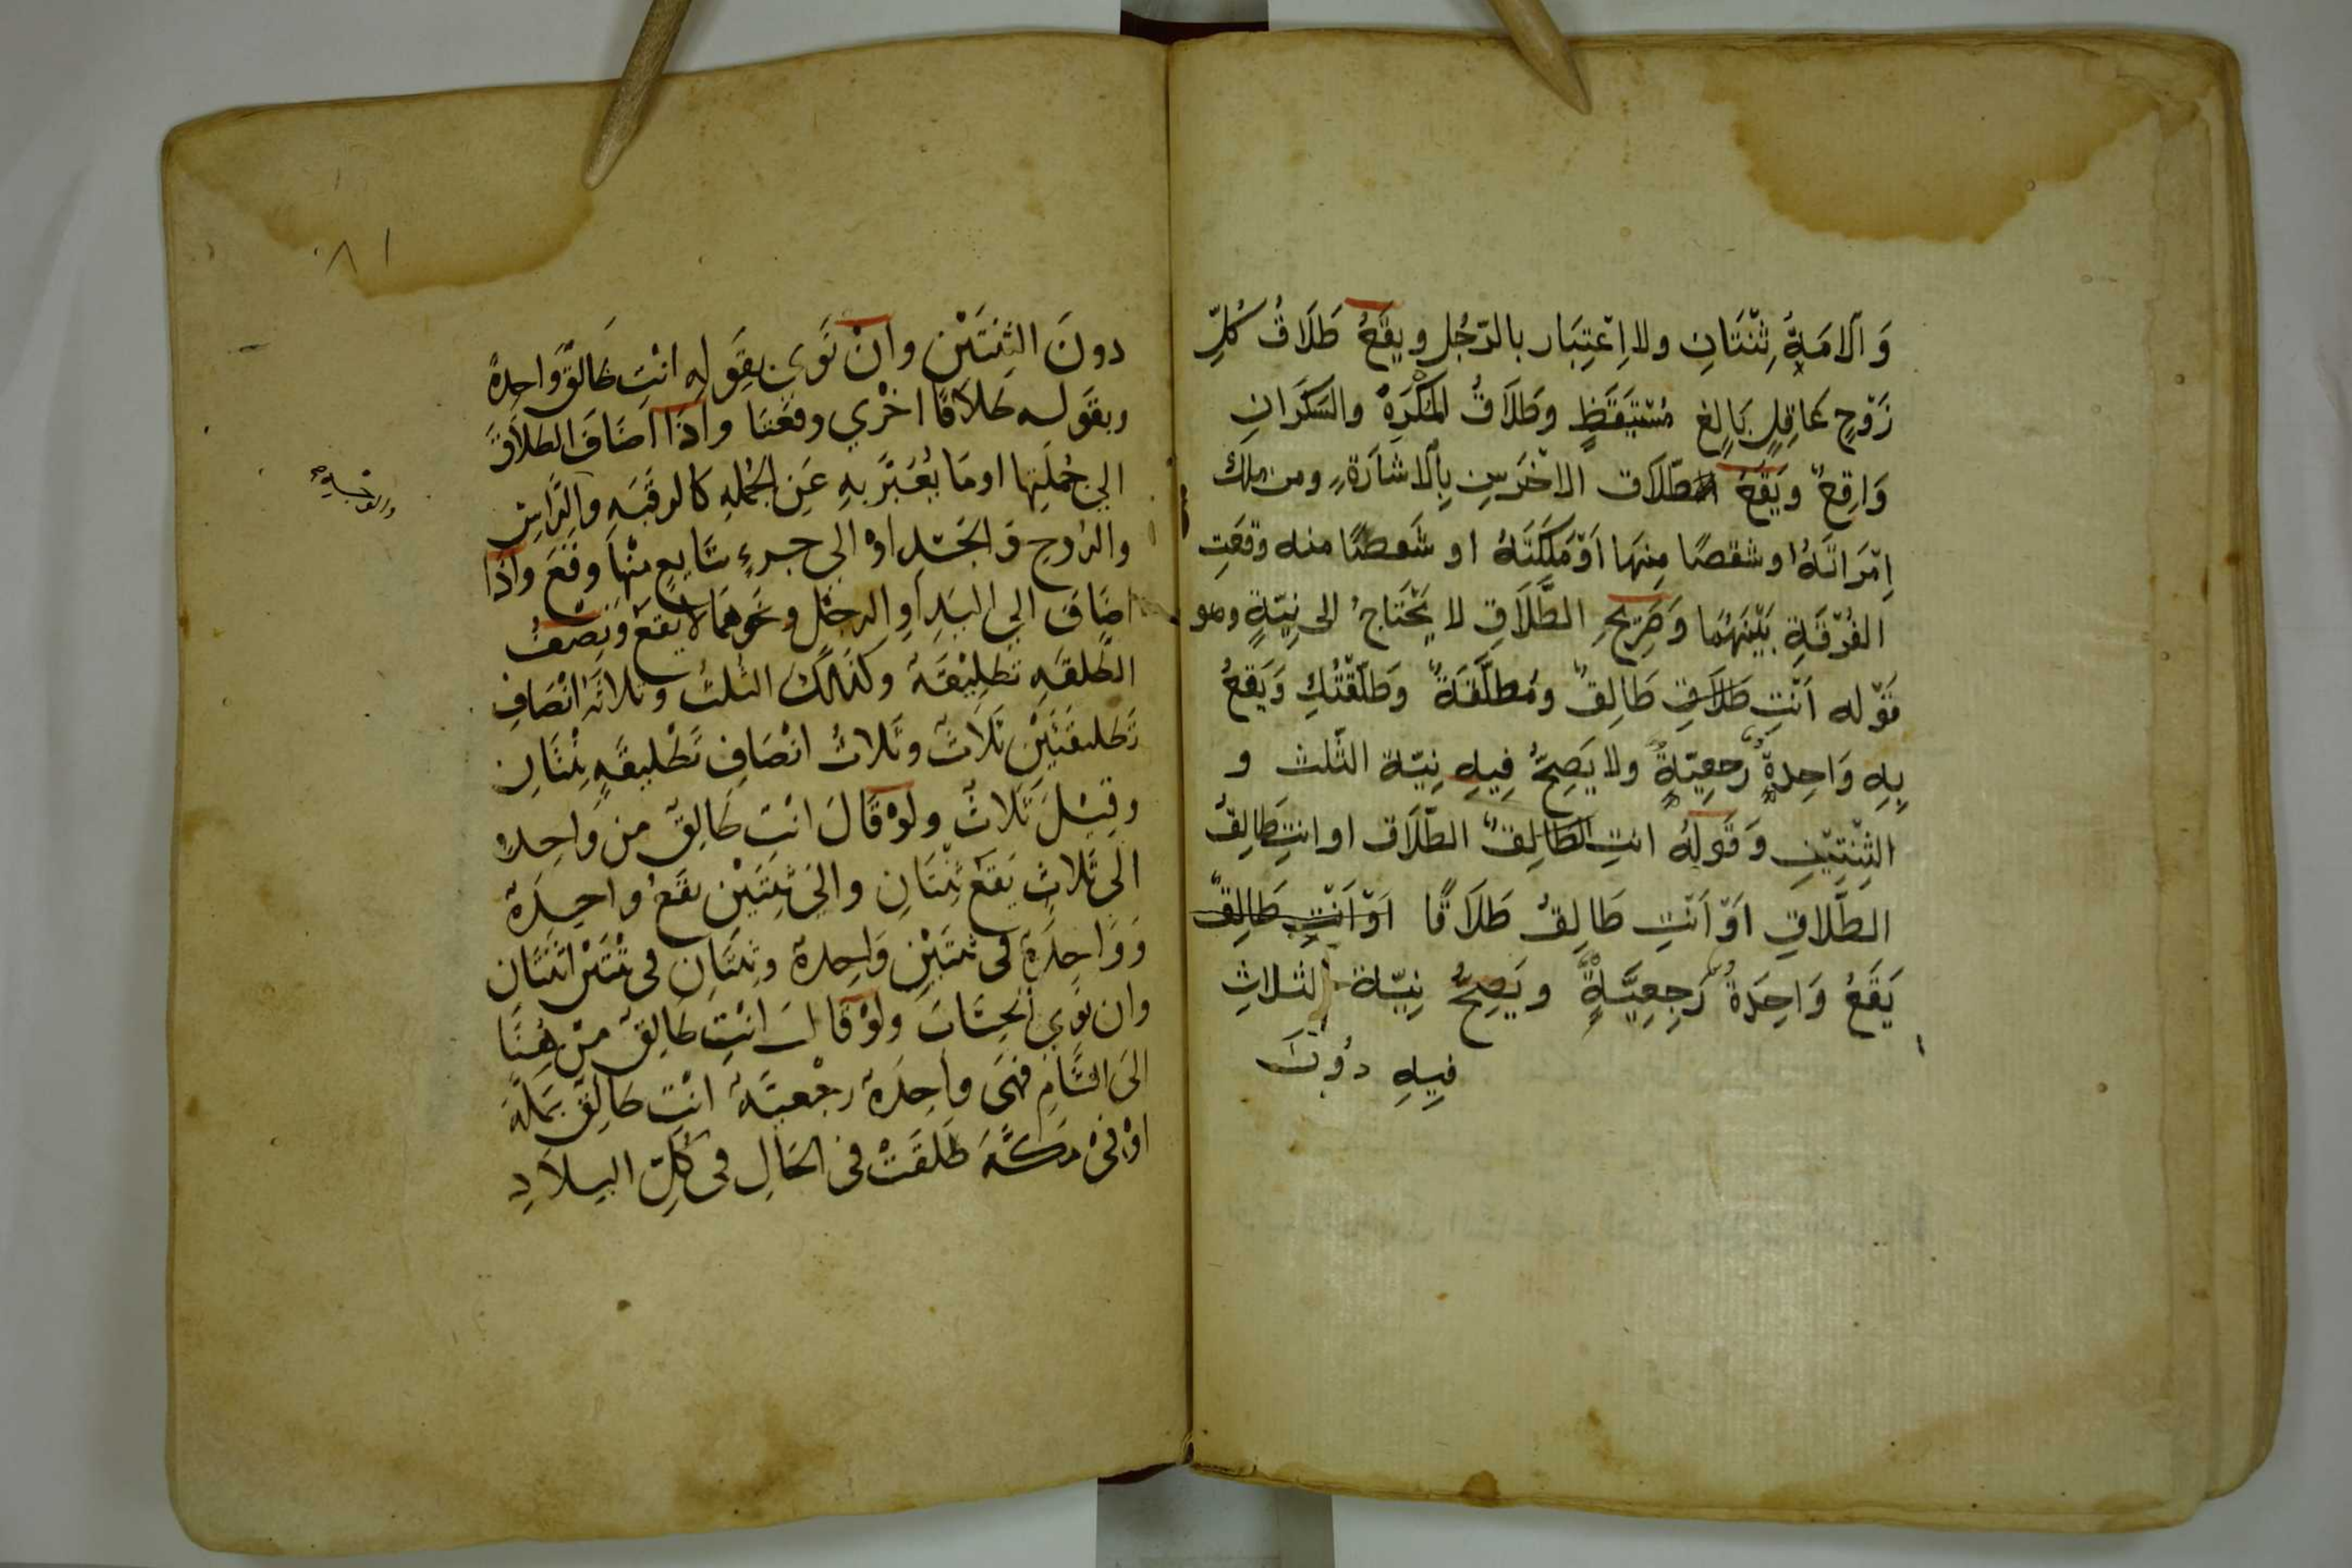 وَالامَةِ ثِنْتَانِ ولا اِعْتِبَار بالرّجُلِ ويقَعُ طَلَاقُ كُلِّ
زَوْجٍ عَاقِلٍ بَالِغٍ مُسْتَيقَظٍ وطَلَاقُ المُكْرَهِ والسّكرَانِ
وَاقِعٌ ويَقَعُ طّلَاق الاخْرَسِ بِالاشارَةِ ومن ملك
اِمْرَاتَهُ او شقصًا مِنهَا اَوْ مَلَكَتَهُ او شقصًا منه وقعَتِ
الفُرْقَةِ بَيْنَهُمَا وَصَرِيْحِ الطَّلَاقِ لا يَحْتَاجُ الى نِيّةٍ وهو
قَوْله اَنْتِ طَلَاقِ طَالِقٌ ومُطلّقَةٌ وطَلّقْتُكِ وَيَقعُ
بِهِ وَاحِدةٌ رَجعِيّةٌ ولا يَصِحُّ فِيهِ نِيّة الثّلث و
الثِنْتيْنِ وَقَولِهُ انتِ الطَالِقٌ الطّلَاق او انتِ طَالِقٌ
الطَّلَاقِ اَوْ اَنْتِ طَالِقٌ طَلَاقًا اَوْ اَنْتِ طَالِقٌ
يَقَعُ وَاحِدَةٌ رَجِعِيَّةٌ ويَصِحُّ نِيّة الثلاثِ
فِيهِ دُونَ
٨١
دونَ الثِنتَيْن وانْ نَوى بِقَولِهِ انْتِ طَالقٌ وَاحِدةً
وبقوله طَلاقًا اخْرى وقعَتا واذَا اضَافَ الطلَاقَ
الي جُملَتِها او مَا يُعَبَّرُ بهِ عَنِ الجُملهِ كالرقَبَه والرَّاسِ
والروحِ و الجَسَدِ اوْ الى جزءٍ شَايعٍ منْهَا وقَعَ واذَا
اضَافَ الي اليَدِ اَوِ الرجْلِ ونحوهمَا لا يَقَعُ ونِصْفُ
الطَلقَهِ تَطلِيْقَهٌ وكذَالكَ الثلثُ وثلاثَهُ انْصَافِ
تَطليقتَيْنِ ثَلاثٌ وثَلاثُ انْصَافِ تَطْليقَهٍ ثِنْتَانِ
وقِيْلَ ثَلاثٌ ولوْ قَالَ انْتِ طَالِقٌ مِن وَاحِدهٍ
الَى ثَلاثٍ يَقَعُ ثِنْتَانِ والَى ثِنتَيْنِ يقَعُ واحِدَةٌ
وَوَاحِدَةٍ فى ثنتَيْنِ وَاحِدةٌ وثِنتَانِ فى ثنْتَيْنِ اثنتَان
وان نوى الحِسَابَ ولَوْ قَالَ انْتِ طَالِقٌ مِنْ هُنَا
الَى الشَّامِ فهَى واحِدَةٌ رجْعيَّهٌ انْتِ طَالِقٌ بمَكّهَ
اوْ فىْ مَكَّهَ طَلقَتْ فى الحَالِ فى كُلِّ البلادِ